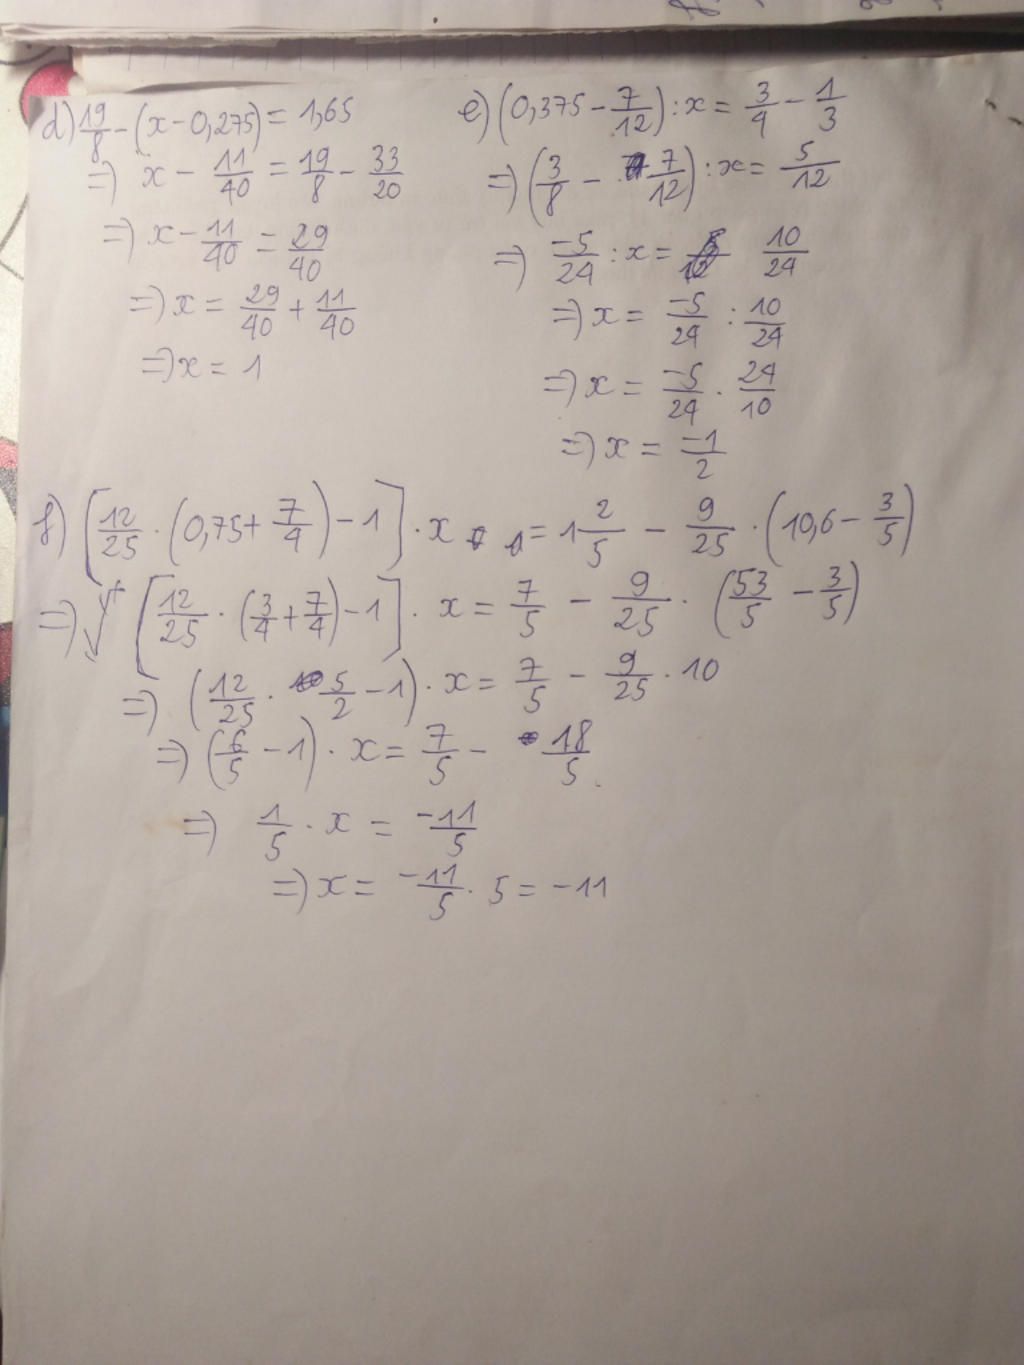 d) 19/8 - (x - 0,275) = 1,65
=) x - 11/40 = 19/8 - 33/20
=) x - 11/40 = 29/40
=) x = 29/40 + 11/40
=) x = 1
e) (0,375 - 7/12) : x = 3/4 - 1/3
=) (3/8 - 7/12) : x = 5/12
=) -5/24 : x = 10/24
=) x = -5/24 : 10/24
=) x = -5/24 . 24/10
=) x = -1/2
f) [12/25 . (0,75 + 7/4) - 1] . x = 1 2/5 - 9/25 . (10,6 - 3/5)
=) [12/25 . (3/4 + 7/4) - 1] . x = 7/5 - 9/25 . (53/5 - 3/5)
=) (12/25 . 5/2 - 1) . x = 7/5 - 9/25 . 10
=) (6/5 - 1) . x = 7/5 - 18/5
=) 1/5 . x = -11/5
=) x = -11/5 . 5 = -11